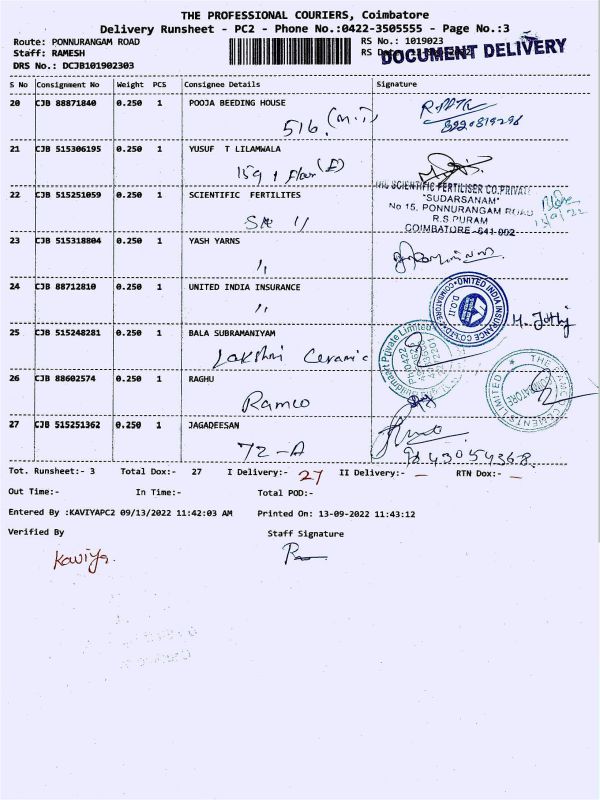 THE PROFESSIONAL COURIERS, Coimbatore
Delivery Runsheet - PC2 - Phone No.:0422-3505555 - Page No.:3
Route: PONNURANGAM ROAD RS No.: 1019023
Staff: RAMESH RS
DOCUMENT DELIVERY
DRS No.: DCJB101902303
S No Consignment No Weight PCS Consignee Details Signature
20 CJB 88871840 0.250 1 POOJA BEEDING HOUSE
516
21 CJB 515306195 0.250 1 YUSUF T LILAMWALA
159 1 Floor
22 CJB 515251059 0.250 1 SCIENTIFIC FERTILITES
SCIENTIFIC FERTILISER CO.PRIVATE
"SUDARSANAM"
No 15, PONNURANGAM ROAD
R.S.PURAM
COIMBATORE-641 002
23 CJB 515318804 0.250 1 YASH YARNS
24 CJB 88712810 0.250 1 UNITED INDIA INSURANCE
UNITED INDIA INSURANCE CO.LTD
COIMBATORE
D.O.II
25 CJB 515248281 0.250 1 BALA SUBRAMANIYAM
Lakshmi Ceramic
Private Limited
26 CJB 88602574 0.250 1 RAGHU
Ramco
CEMENTS LIMITED
COIMBATORE
27 CJB 515251362 0.250 1 JAGADEESAN
72-A
Tot. Runsheet:- 3 Total Dox:- 27 I Delivery:- 27 II Delivery:- – RTN Dox:- –
Out Time:- In Time:- Total POD:-
Entered By :KAVIYAPC2 09/13/2022 11:42:03 AM Printed On: 13-09-2022 11:43:12
Verified By Staff Signature
Kaviya.